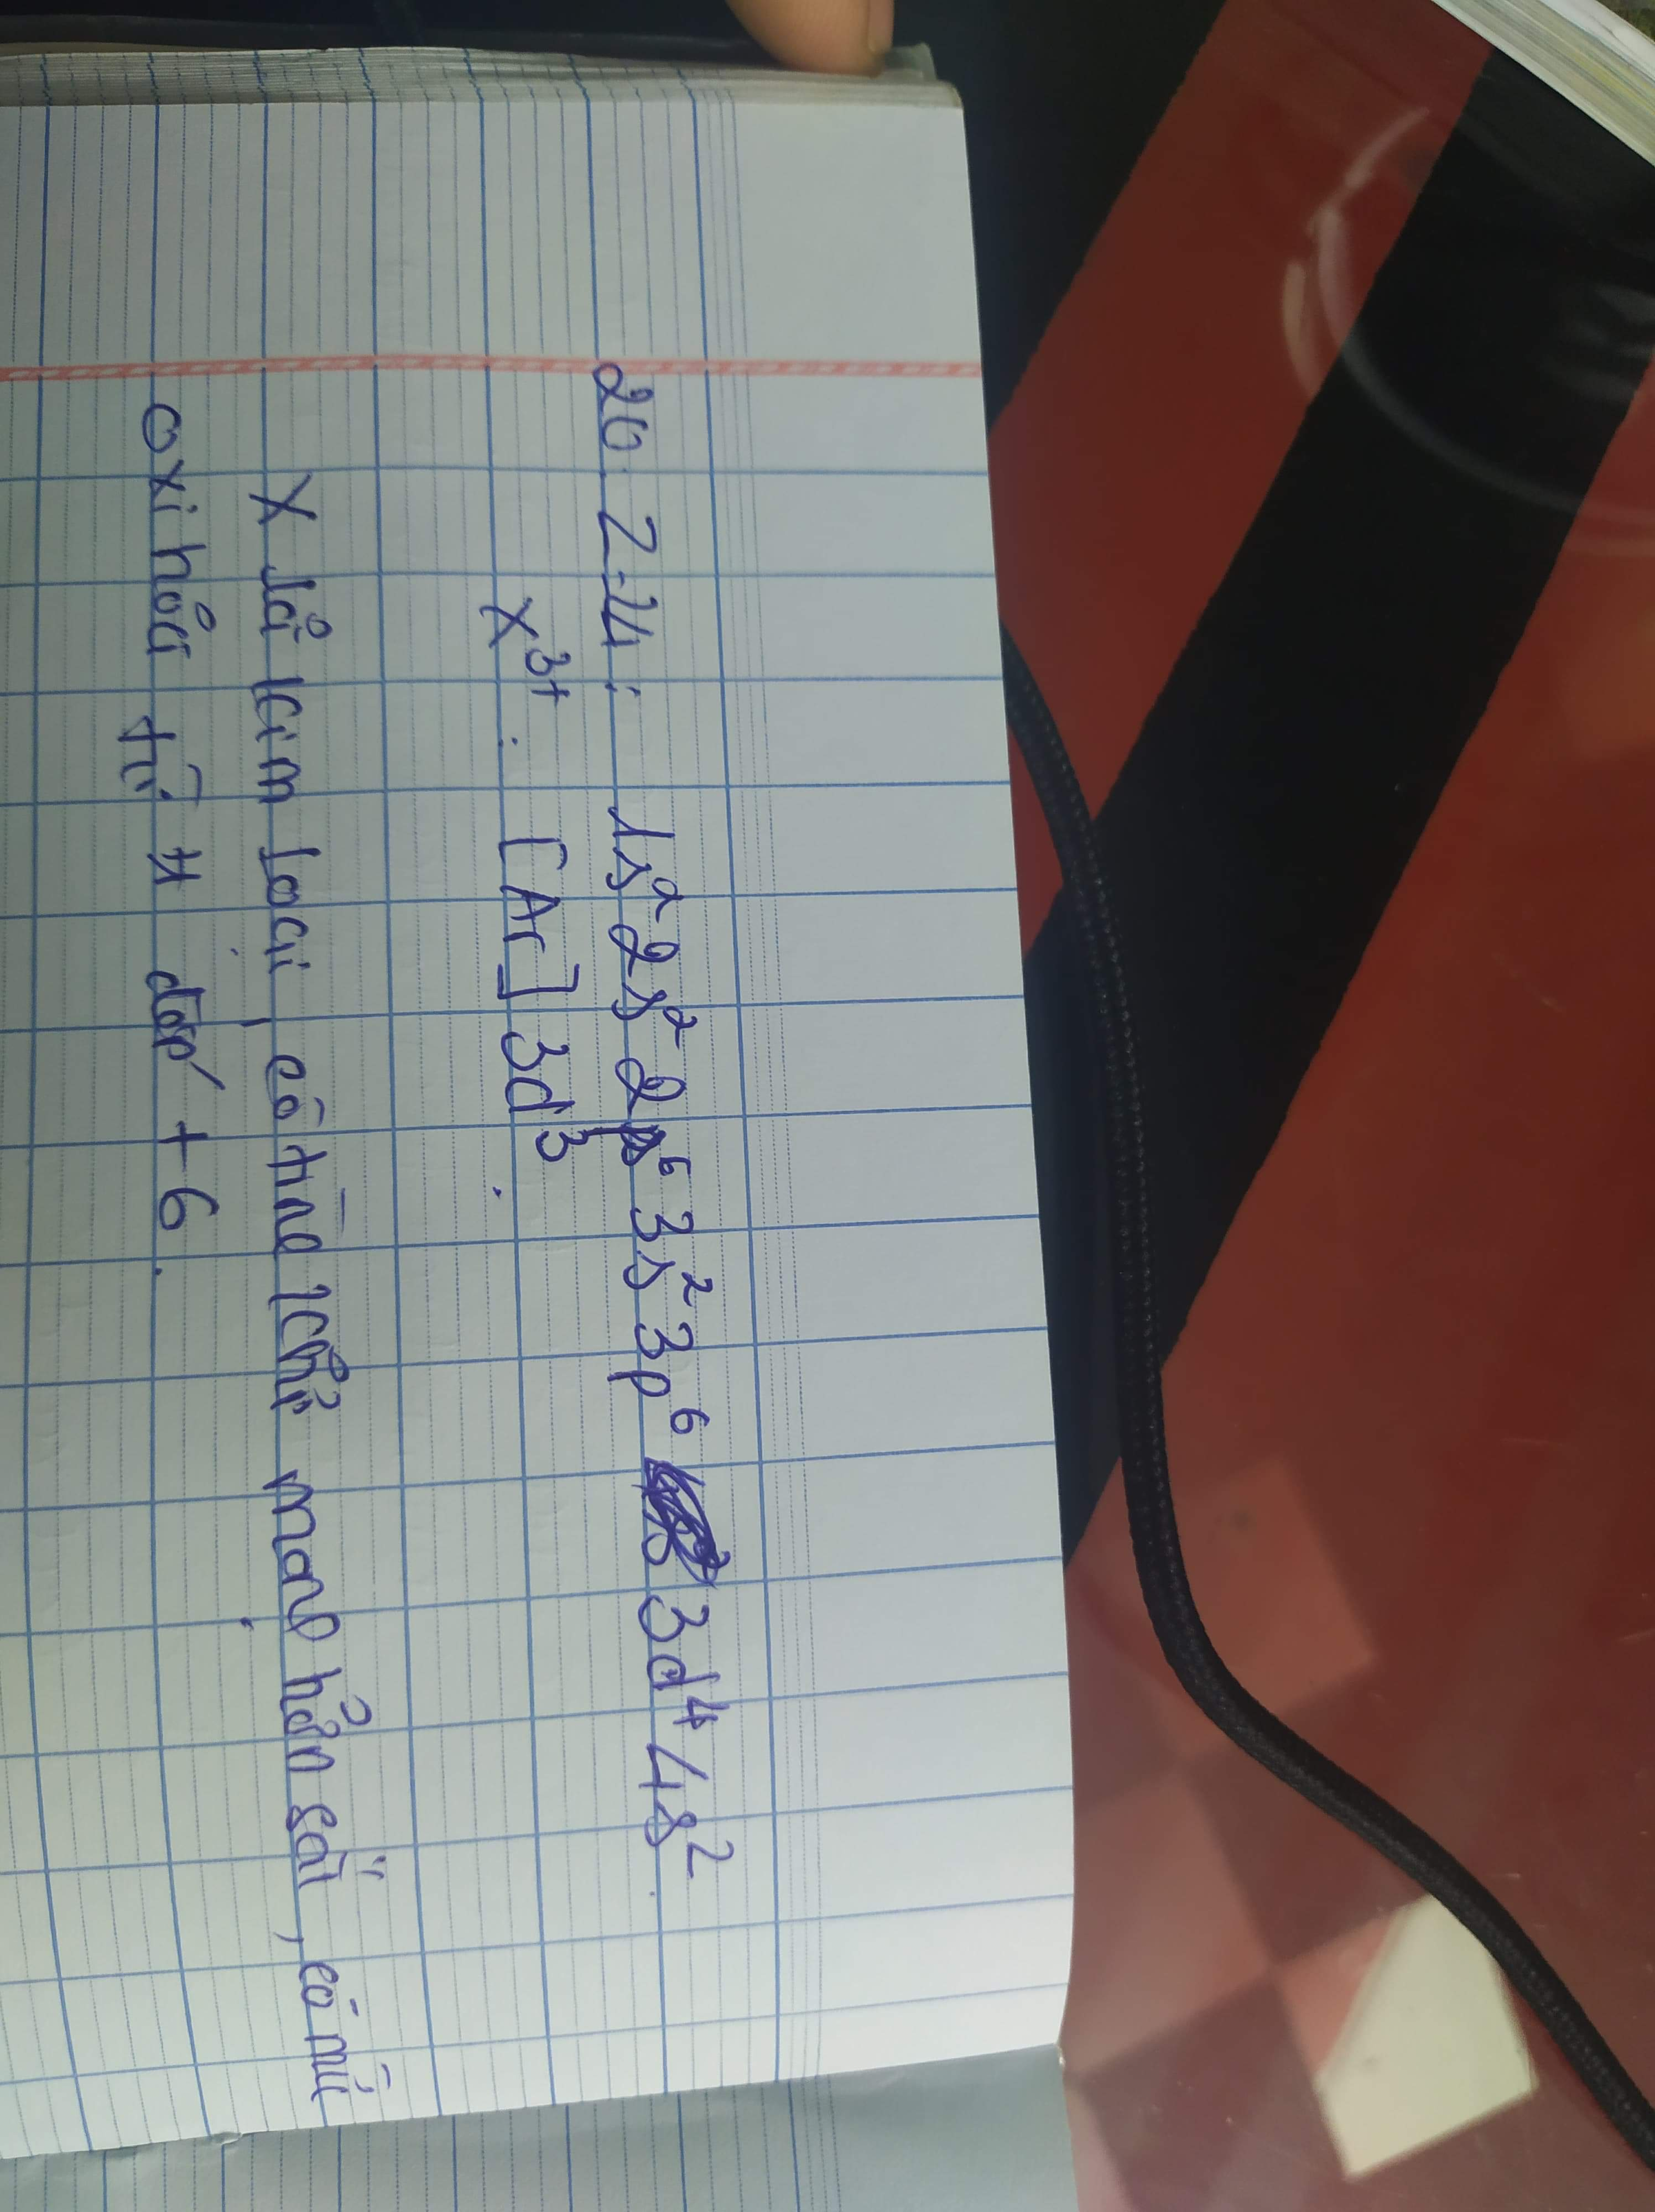 20. Z=24: 1s² 2s² 2p⁶ 3s² 3p⁶ 3d⁴ 4s².
X³⁺: [Ar] 3d³.
X là kim loại, có tính khử mạnh hơn sắt, có mức
oxi hóa từ +1 đến +6.